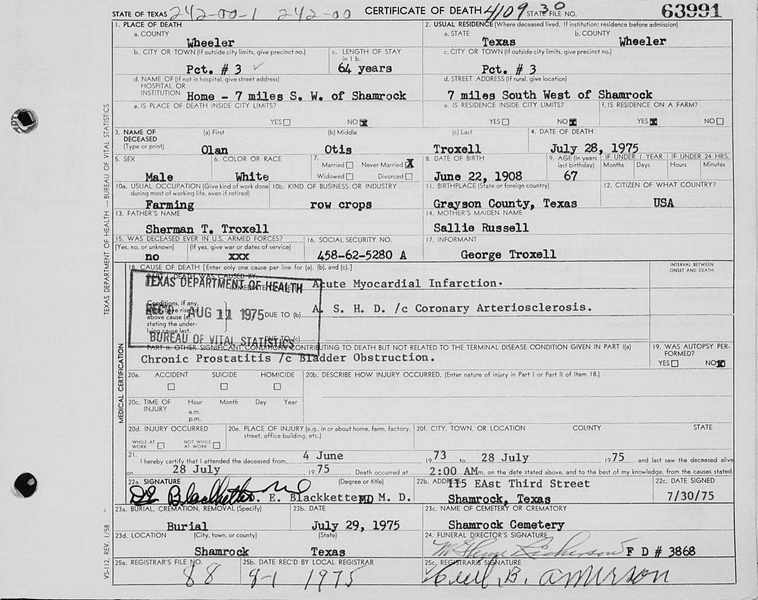 STATE OF TEXAS 242-00-1 242-00 CERTIFICATE OF DEATH 4109 STATE FILE NO. 30 63991
1. PLACE OF DEATH 2. USUAL RESIDENCE (Where deceased lived. If institution: residence before admission)
a. COUNTY a. STATE b. COUNTY
Wheeler Texas Wheeler
b. CITY OR TOWN (If outside city limits, give precinct no.) c. LENGTH OF STAY in 1 b. c. CITY OR TOWN (If outside city limits, give precinct no.)
Pct. # 3 64 years Pct. # 3
d. NAME OF (If not in hospital, give street address) HOSPITAL OR INSTITUTION d. STREET ADDRESS (If rural, give location)
Home - 7 miles S. W. of Shamrock 7 miles South West of Shamrock
e. IS PLACE OF DEATH INSIDE CITY LIMITS? e. IS RESIDENCE INSIDE CITY LIMITS? f. IS RESIDENCE ON A FARM?
YES NO X YES NO X YES X NO
3. NAME OF DECEASED (Type or print) (a) First (b) Middle (c) Last 4. DATE OF DEATH
Olan Otis Troxell July 28, 1975
5. SEX 6. COLOR OR RACE 7. Married Never Married X Widowed Divorced 8. DATE OF BIRTH 9. AGE (In years last birthday) IF UNDER 1 YEAR Months Days IF UNDER 24 HRS. Hours Min.
Male White June 22, 1908 67
10a. USUAL OCCUPATION (Give kind of work done during most of working life, even if retired) 10b. KIND OF BUSINESS OR INDUSTRY 11. BIRTHPLACE (State or foreign country) 12. CITIZEN OF WHAT COUNTRY?
Farming row crops Grayson County, Texas USA
13. FATHER'S NAME 14. MOTHER'S MAIDEN NAME
Sherman T. Troxell Sallie Russell
15. WAS DECEASED EVER IN U.S. ARMED FORCES? (Yes, no, or unknown) (If yes, give war or dates of service) 16. SOCIAL SECURITY NO. 17. INFORMANT
no xxx 458-62-5280 A George Troxell
18. CAUSE OF DEATH [Enter only one cause per line for (a), (b), and (c).] INTERVAL BETWEEN ONSET AND DEATH
Acute Myocardial Infarction.
Conditions, if any, DUE TO (b) A. S. H. D. /c Coronary Arteriosclerosis.
above cause stating the underlying cause last.
TEXAS DEPARTMENT OF HEALTH
REC'D AUG 11 1975
BUREAU OF VITAL STATISTICS
PART II. OTHER SIGNIFICANT CONDITIONS CONTRIBUTING TO DEATH BUT NOT RELATED TO THE TERMINAL DISEASE CONDITION GIVEN IN PART I(a) 19. WAS AUTOPSY PERFORMED?
Chronic Prostatitis /c Bladder Obstruction. YES NO X
20a. ACCIDENT SUICIDE HOMICIDE 20b. DESCRIBE HOW INJURY OCCURRED. (Enter nature of injury in Part I or Part II of Item 18.)
20c. TIME OF INJURY Hour Month Day Year
a.m.
p.m.
20d. INJURY OCCURRED WHILE AT WORK NOT WHILE AT WORK 20e. PLACE OF INJURY (e.g., in or about home, farm, factory, street, office building, etc.) 20f. CITY, TOWN, OR LOCATION COUNTY STATE
21. I hereby certify that I attended the deceased from 4 June 1973 to 28 July 1975 and last saw the deceased alive
on 28 July 1975 Death occurred at 2:00 A m. on the date stated above, and to the best of my knowledge, from the causes stated.
22a. SIGNATURE (Degree or title) 22b. ADDRESS 115 EAst Third Street 22c. DATE SIGNED
E. Blackketter MD M. D. Shamrock, Texas 7/30/75
23a. BURIAL, CREMATION, REMOVAL (Specify) 23b. DATE 23c. NAME OF CEMETERY OR CREMATORY
Burial July 29, 1975 Shamrock Cemetery
23d. LOCATION (City, town, or county) (State) 24. FUNERAL DIRECTOR'S SIGNATURE
Shamrock Texas F D # 3868
25a. REGISTRAR'S FILE NO. 25b. DATE REC'D BY LOCAL REGISTRAR 25c. REGISTRAR'S SIGNATURE
88 8-1 1975
TEXAS DEPARTMENT OF HEALTH — BUREAU OF VITAL STATISTICS
MEDICAL CERTIFICATION
VS-112, REV. 1/58